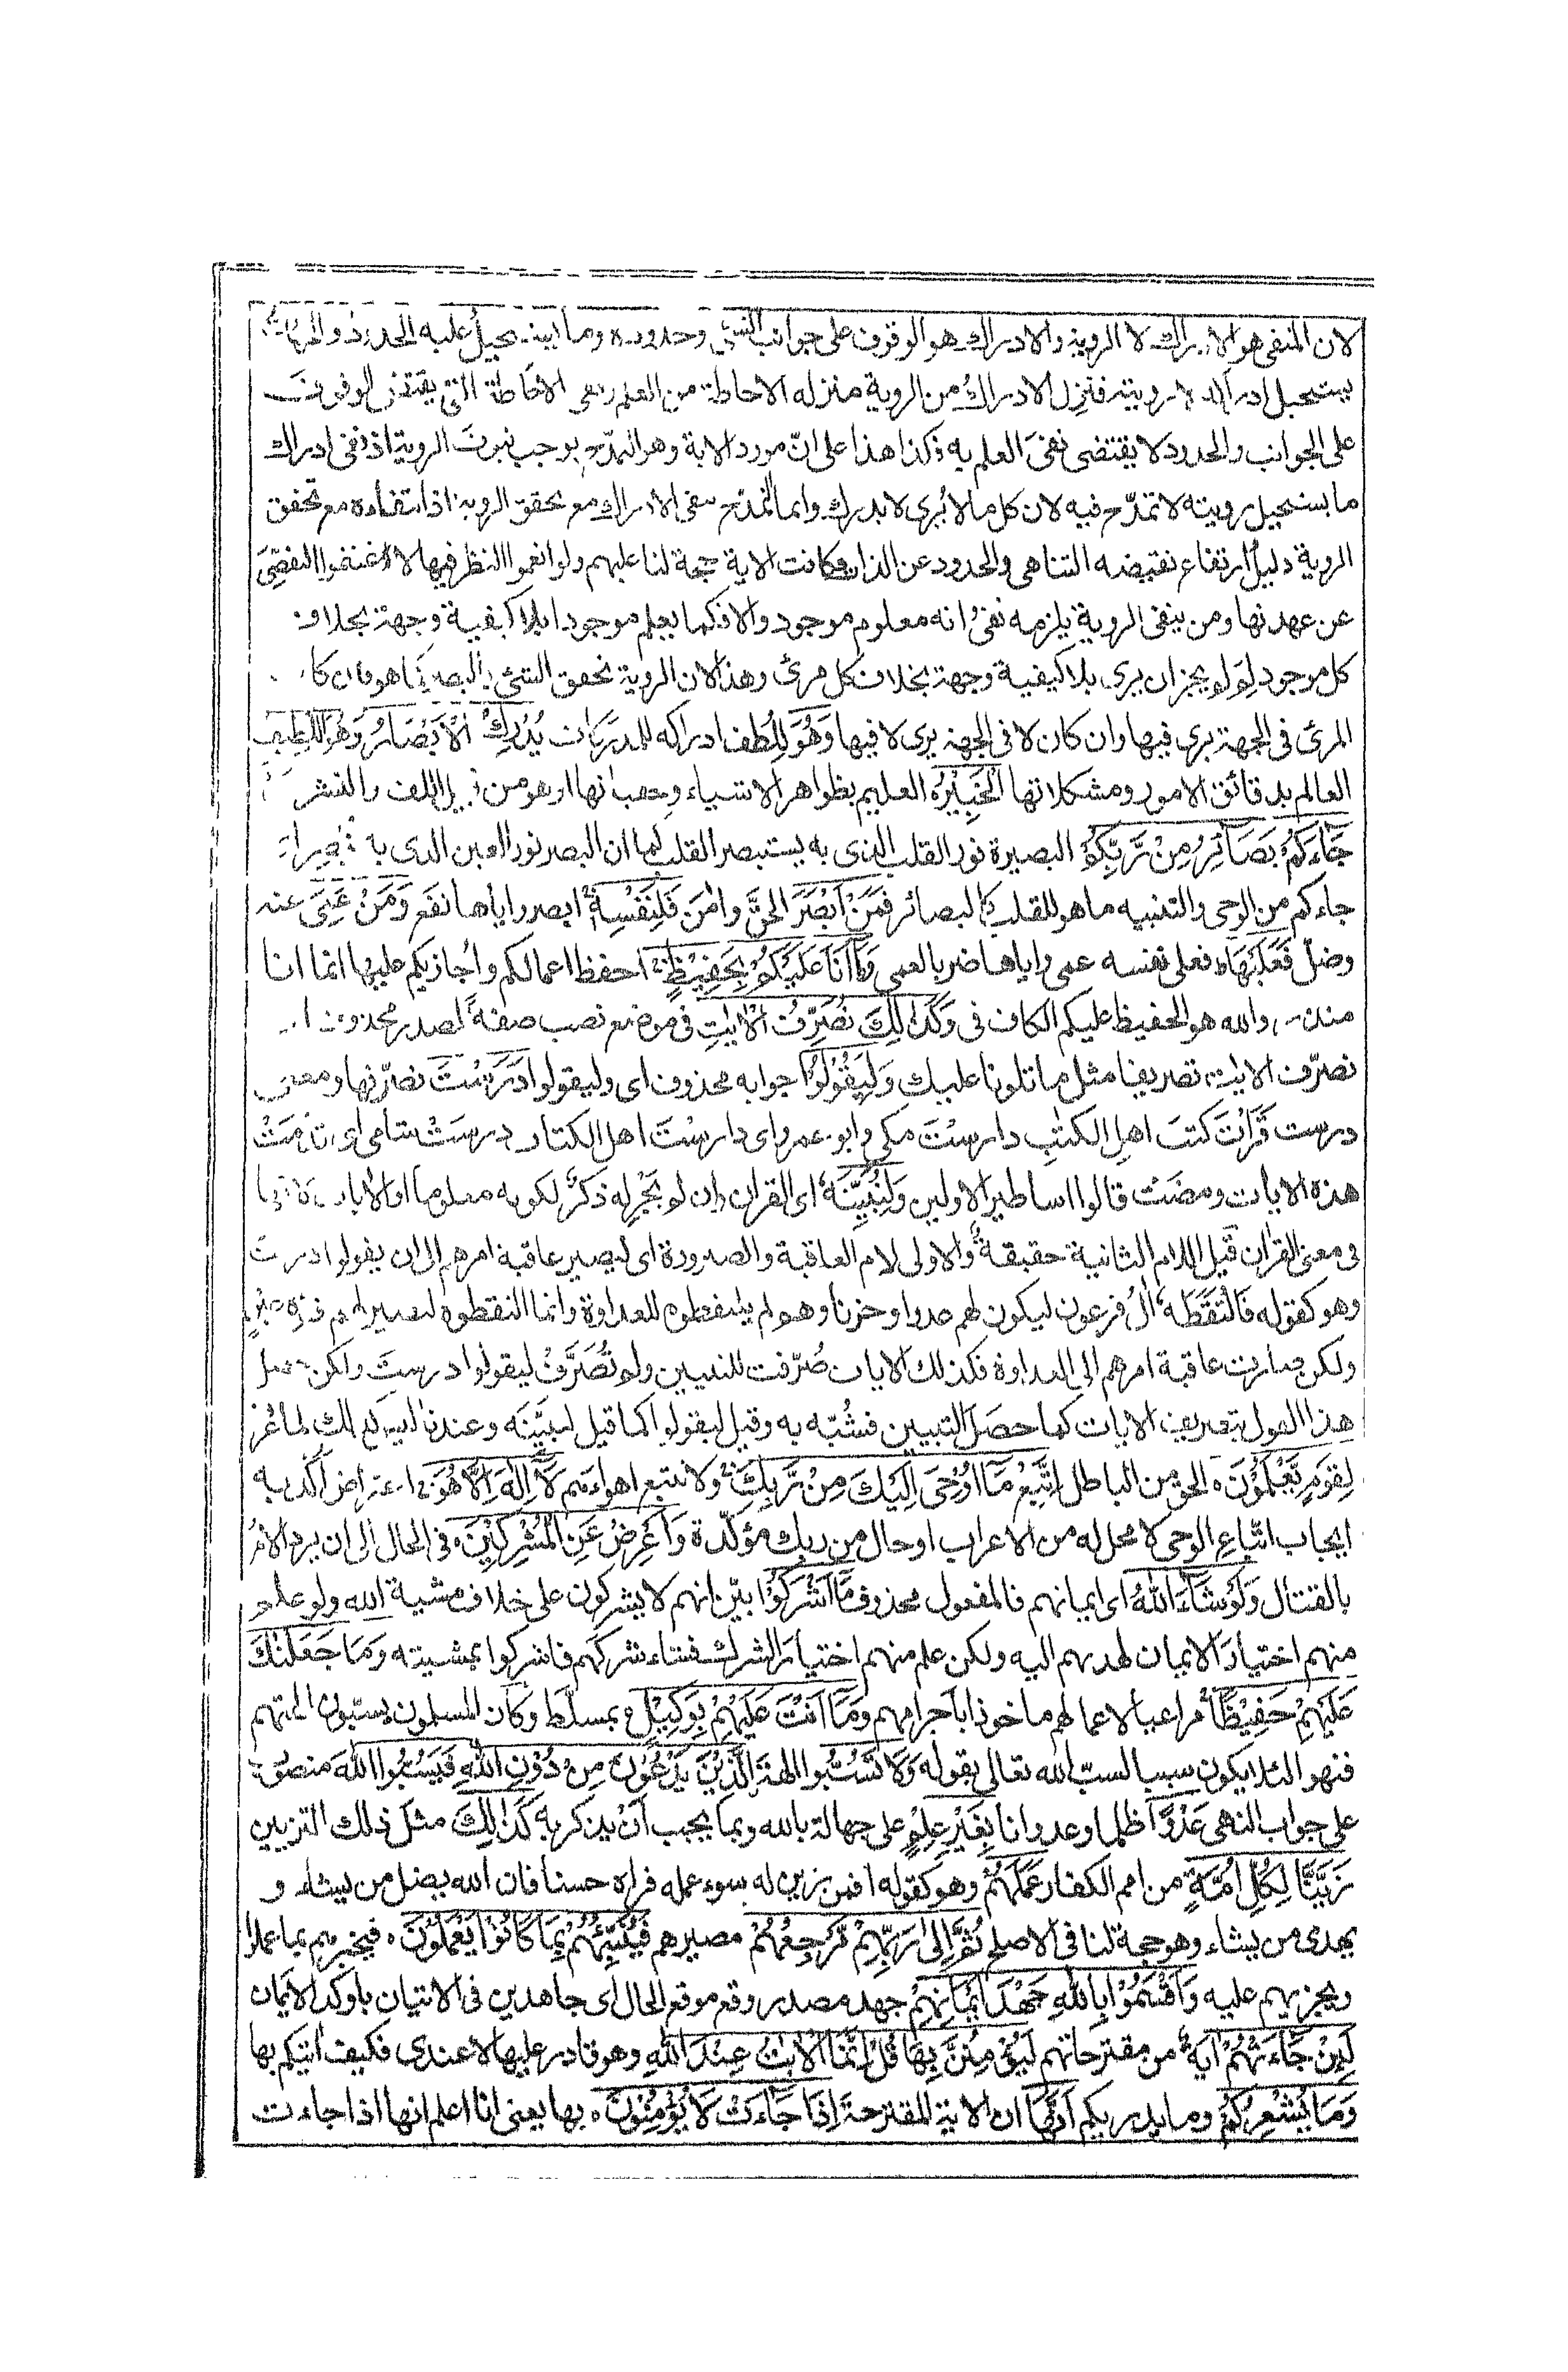 لان المنفى هو الادراك لا الروية والادراك هو الوقوف على جوانب الشئ وحدوده وما يستحيل عليه الحدود والجهات
يستحيل ادراكه لا رويته فنزل الادراك من الروية منزلة الاحاطة من العلم ونفى الاحاطة التى يقتضى الوقوف
على الجوانب والحدود لا يقتضى نفى العلم به فكذا هذا على انّ مورد الاية وهو التمدّح يوجب ثبوت الروية اذ نفى ادراك
ما يستحيل رويته لا تمدّح فيه لان كل ما لا يُرى لا يدرك وانما التمدّح بنفى الادراك مع تحقق الروية اذ انتفاءه مع تحقق
الروية دليل ارتفاع نقيضه التناهى والحدود عن الذات فكانت الاية حجة لنا عليهم ولو انعموا النظر فيها لاغتنموا التفصّى
عن عهدتها ومن ينفى الروية يلزمه نفى انه معلوم موجود والا فكما يعلم موجودا بلا كيفية وجهة بخلاف
كل موجود لِمَ لم يجز ان يرى بلا كيفية وجهة بخلاف كل مرئ وهذا لان الروية تحقق الشئ بالبصر كما هو فان كان
المرئ فى الجهة يرى فيها وان كان لا فى الجهة يرى لا فيها وَهُوَ لِلُطف ادراكه للمدركات يُدْرِكُ الْاَبْصَارَ وَهُوَ اللَّطِيفُ
العالم بدقائق الامور ومشكلاتها الْخَبِيْرُ ه العليم بظواهر الاشياء وخفياتها وهو من قبيل اللف والنشر قَدْ
جَآءَكُمْ بَصَآئِرُ مِنْ رَّبِّكُمْ البصيرة نور القلب الذى به يستبصر القلب كما ان البصر نور العين الذى به تبصر اى
جاءكم من الوحى والتنبيه ما هو للقلب كالبصائر فَمَنْ اَبْصَرَ الحقَّ وامَنَ فَلِنَفْسِهٖ ابصر واياها نفع وَمَنْ عَمِىَ عنه
وضلّ فَعَلَيْهَا ط فعلى نفسه عمى واياها ضر بالعمى وَمَآ اَنَا عَلَيْكُمْ بِحَفِيْظٍ احفظ اعمالكم واُجازيكم عليها انما انا
منذر والله هو الحفيظ عليكم الكاف فى وَكَذٰلِكَ نُصَرِّفُ الْاٰيٰتِ فى موضع نصب صفةً لمصدر محذوف اى
نصرّف الايات تصريفا مثل ما تلونا عليك وَلِيَقُوْلُوْا جوابه محذوف اى وليقولوا دَرَسْتَ نصرّفها ومعنى
درست قَرَأتَ كتبَ اهلِ الكتٰبِ دارسْتَ مكى وابو عمرو اى دارسْتَ اهل الكتاب درسَتْ شامى اى تقدمَتْ
هذه الايات ومضَتْ قالوا اساطير الاولين وَلِنُبَيِّنَهٗ اى القرآن وان لم يَجْرِ له ذكرٌ لكونه معلوما او الايات لانها
فى معنى القرآن قيل اللام الثانية حقيقةٌ والاولى لام العاقبة والصيرورة اى ليصير عاقبة امرهم الى ان يقولوا درست
وهو كقوله فَالْتَقَطَهٗ اٰلُ فرعون ليكون لهم عدوا وحزنا وهو لم يلتقطوه للعداوة وانما التقطوه ليصير لهم قرة عينٍ
ولكن صارت عاقبة امرهم الى العداوة فكذلك الايات صُرّفت للتبيين ولم تُصَرَّفْ ليقولوا درستَ ولكن حصل
هذا القول بتصريف الايات كما حصل التبيين فشُبّه به وقيل ليقولوا كما قيل لنبيّنه وعندنا ليس كذلك لما عُرف
لِقَوْمٍ يَّعْلَمُوْنَ ه الحق من الباطل اِتَّبِعْ مَآ اُوْحِىَ اِلَيْكَ مِنْ رَّبِّكَ ولا تتبع اهواءهم لَآ اِلٰهَ اِلَّا هُوَ اعتراض اُكّد به
ايجاب اتّباع الوحى لا محل له من الاعراب او حال من ربك مؤكّدة وَاَعْرِضْ عَنِ الْمُشْرِكِيْنَ ه فى الحال الى ان يرد الامر
بالقتال وَلَوْ شَآءَ اللّٰهُ اى ايمانهم فالمفعول محذوف مَآ اَشْرَكُوْا بيّن انهم لا يشركون على خلاف مشية الله ولو علم
منهم اختيار الايمان لهديهم اليه ولكن علم منهم اختيار الشرك فشاء شركهم فاشركوا بمشيته وَمَا جَعَلْنٰكَ
عَلَيْهِمْ حَفِيْظًا مراعيا لاعمالهم ماخوذا باجرامهم وَمَآ اَنْتَ عَلَيْهِمْ بِوَكِيْلٍ ه بمسلّط وكان المسلمون يسبّون الهتهم
فنهوا لئلا يكون سببا لسبّ الله تعالى بقوله وَلَا تَسُبُّوا الهةَ الَّذِيْنَ يَدْعُوْنَ مِنْ دُوْنِ اللّٰهِ فَيَسُبُّوا اللّٰهَ منصوب
على جواب النهى عَدْوًا ظلما وعدوانا بِغَيْرِ عِلْمٍ على جهالة بالله وبما يجب اَنْ يذكر به كَذٰلِكَ مثل ذلك التزيين
زَيَّنَّا لِكُلِّ اُمَّةٍ من امم الكفار عَمَلَهُمْ وهو كقوله افمن زين له سوء عمله فراه حسنا فان الله يضل من يشاء و
يهدى من يشاء وهو حجة لنا فى الاصلح ثُمَّ اِلٰى رَبِّهِمْ مَّرْجِعُهُمْ مصيرهم فَيُنَبِّئُهُمْ بِمَا كَانُوْا يَعْمَلُوْنَ ه فيخبرهم بما عملوا
ويجزيهم عليه وَاَقْسَمُوْا بِاللّٰهِ جَهْدَ اَيْمَانِهِمْ جهد مصدر وقع موقع الحال اى جاهدين فى الاتيان باوكد الايمان
لَئِنْ جَآءَتْهُمْ اٰيَةٌ من مقترحاتهم لَّيُؤْمِنُنَّ بِهَا قُلْ اِنَّمَا الْاٰيٰتُ عِنْدَ اللّٰهِ وهو قادر عليها لا عندى فكيف اٰتيكم بها
وَمَا يُشْعِرُكُمْ وما يدريكم اَنَّهَآ ان الاية المقترحة اِذَا جَآءَتْ لَا يُؤْمِنُوْنَ ه بها يعنى انا اعلم انها اذا جاءت